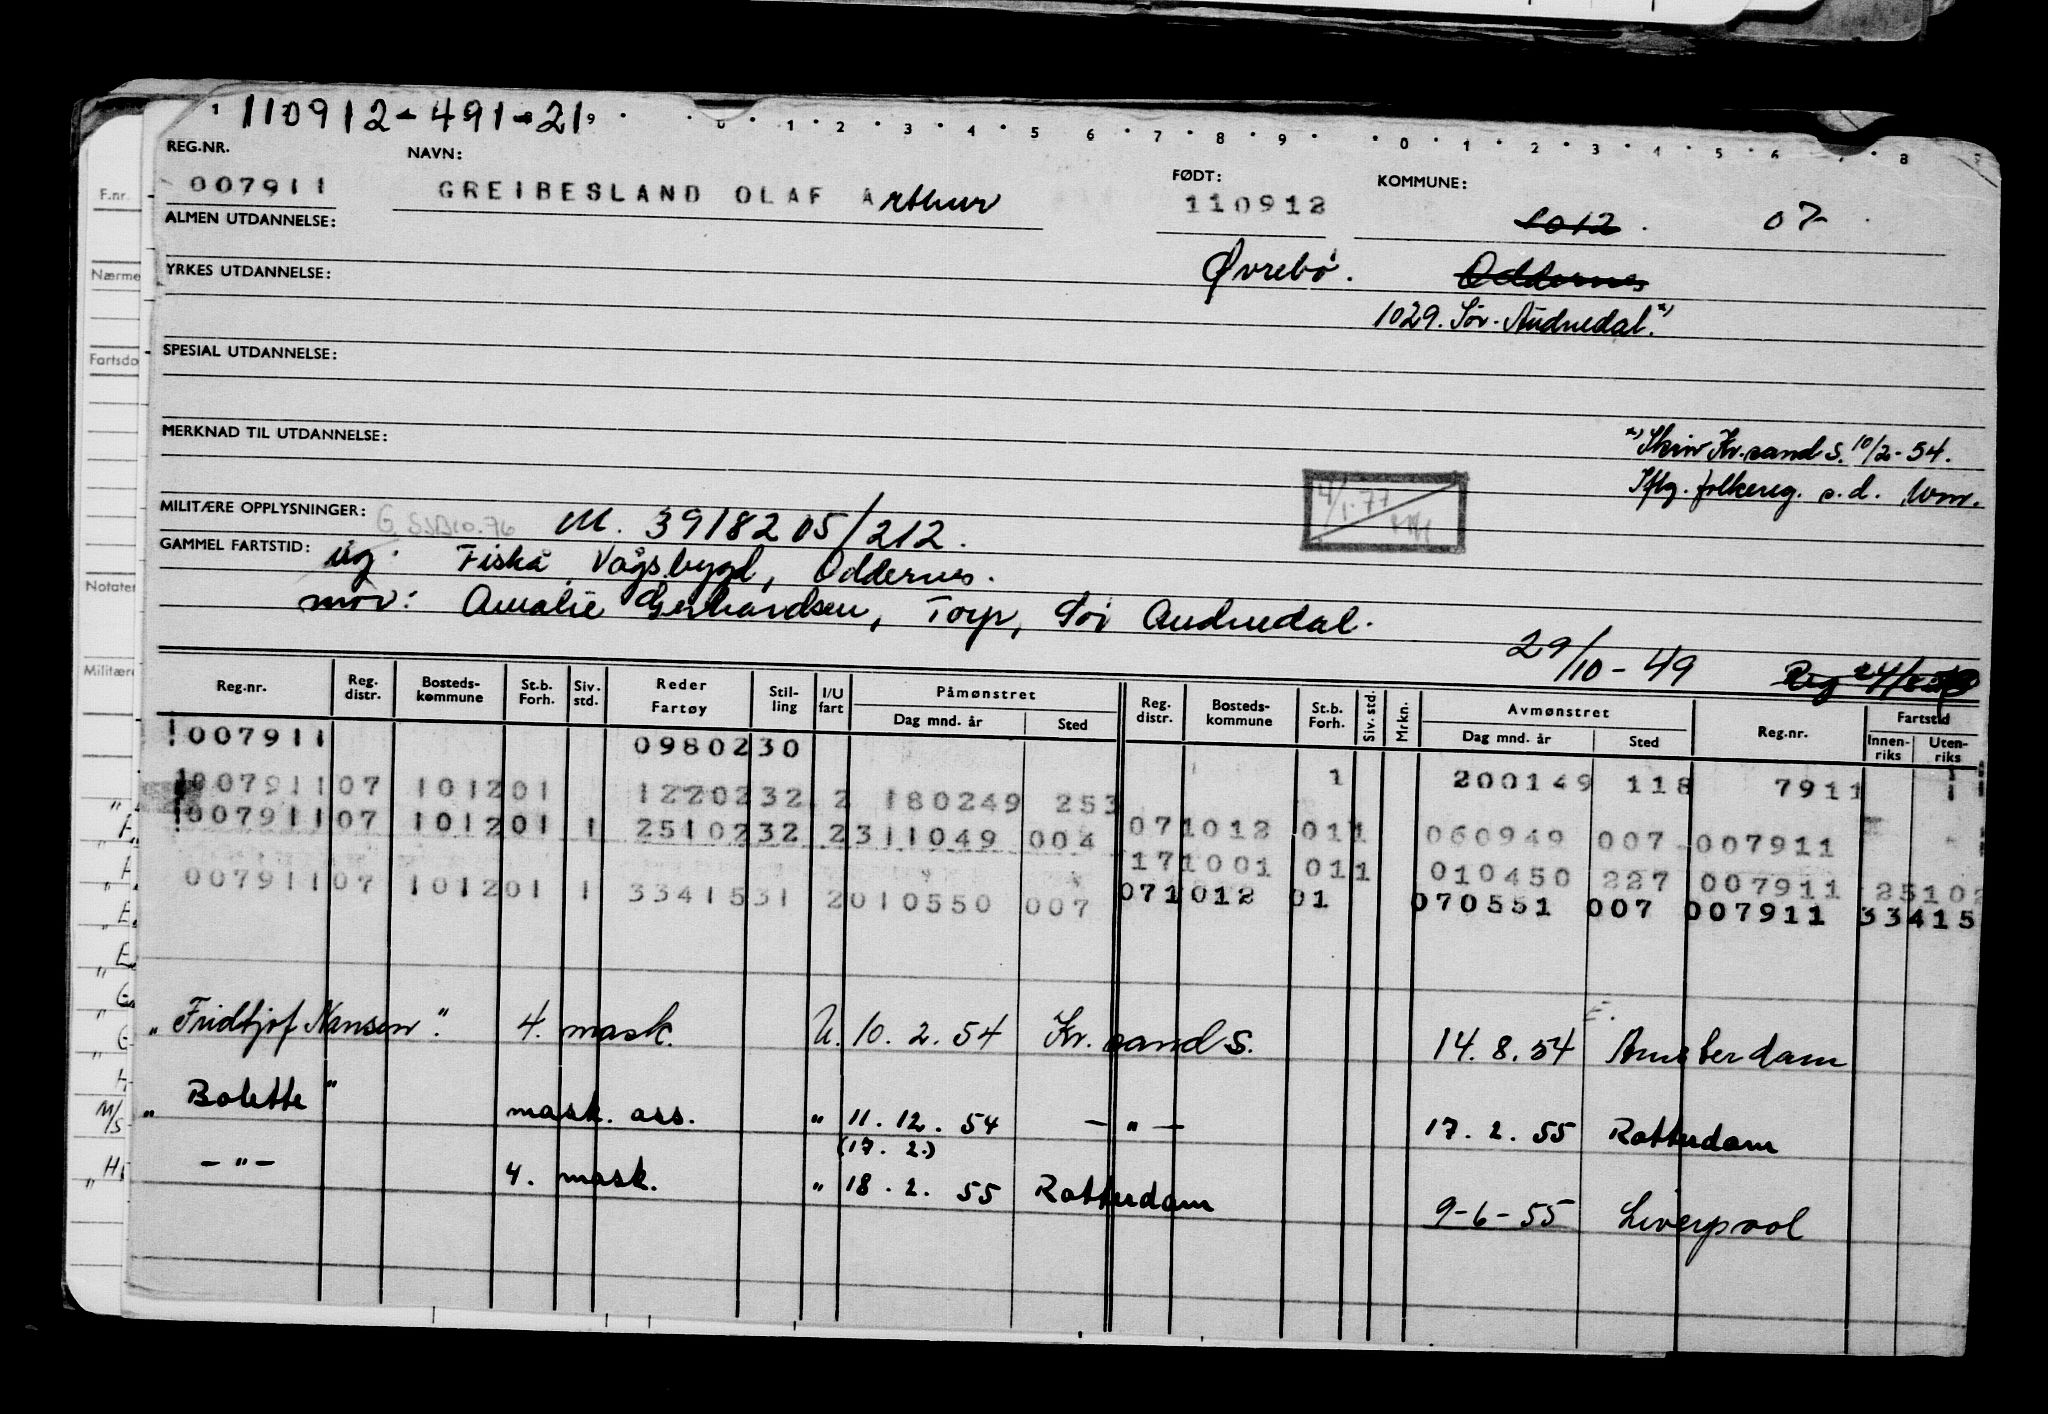 110912-491-21
9 0 1 2 3 4 5 6 7 8 9 0 1 2 3 4 5 6 7 8
REG.NR. NAVN: FØDT: KOMMUNE:
007911 GREIBESLAND OLAF Arthur 110912 1012 07
ALMEN UTDANNELSE:
Øvrebø. Oddernes
YRKES UTDANNELSE:
1029. Sør-Audnedal.x)
SPESIAL UTDANNELSE:
MERKNAD TIL UTDANNELSE:
x) Skriv Kr.sand S. 10/2-54.
Iflg. folkereg. s.d.
MILITÆRE OPPLYSNINGER: M. 3918205/212.
4/1-77
GAMMEL FARTSTID: ug. Fiskå, Vågsbygd, Oddernes.
mor: Amalie Gerhardsen, Torp, Sør Audnedal.
29/10-49 Reg
Reg.nr. Reg. distr. Bosteds-kommune St.b. Forh. Siv. std. Reder Fartøy Stil-ling I/U fart Påmønstret Dag mnd. år Sted Reg. distr. Bosteds-kommune St.b. Forh. Siv. std. Mrkn. Avmønstret Dag mnd. år Sted Reg.nr. Fartstid Innen-riks Uten-riks
007911 0980230 1 200149 118 7911
007911 07 1012 01 1220232 2 180249 253 07 1012 01 1 060949 007 007911
007911 07 1012 01 1 2510232 2 311049 004 17 1001 01 1 010450 227 007911 2510
007911 07 1012 01 1 3341531 2 010550 007 07 1012 01 070551 007 007911 33415
"Fridtjof Nansen". 4. mask. U. 10. 2. 54 Kr.sand S. 14. 8. 54 Amsterdam
"Bolette" mask. ass. " 11. 12. 54 - " - 17. 2. 55 Rotterdam
(17. 2.)
- " - 4. mask. " 18. 2. 55 Rotterdam 9-6-55 Liverpool
F.nr.
Nærme
Fartsdo
Notater
Militære